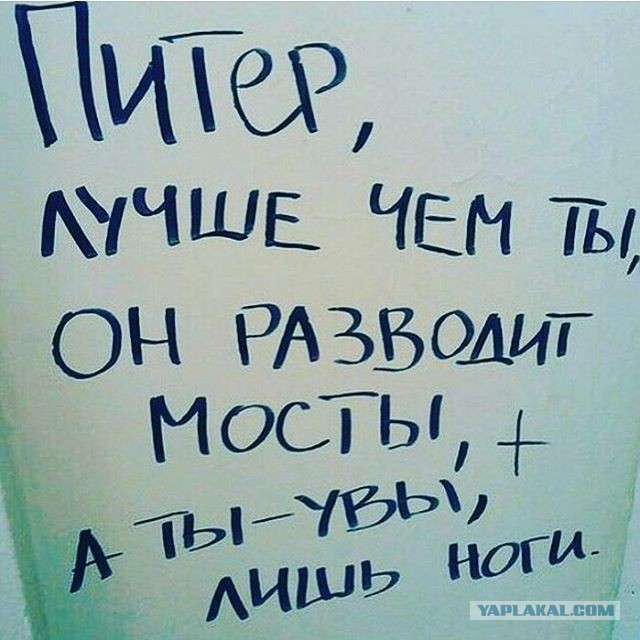 Питер,
лучше чем ты,
он разводит
мосты, +
а ты-увы,
лишь ноги.
YAPLAKAL.COM